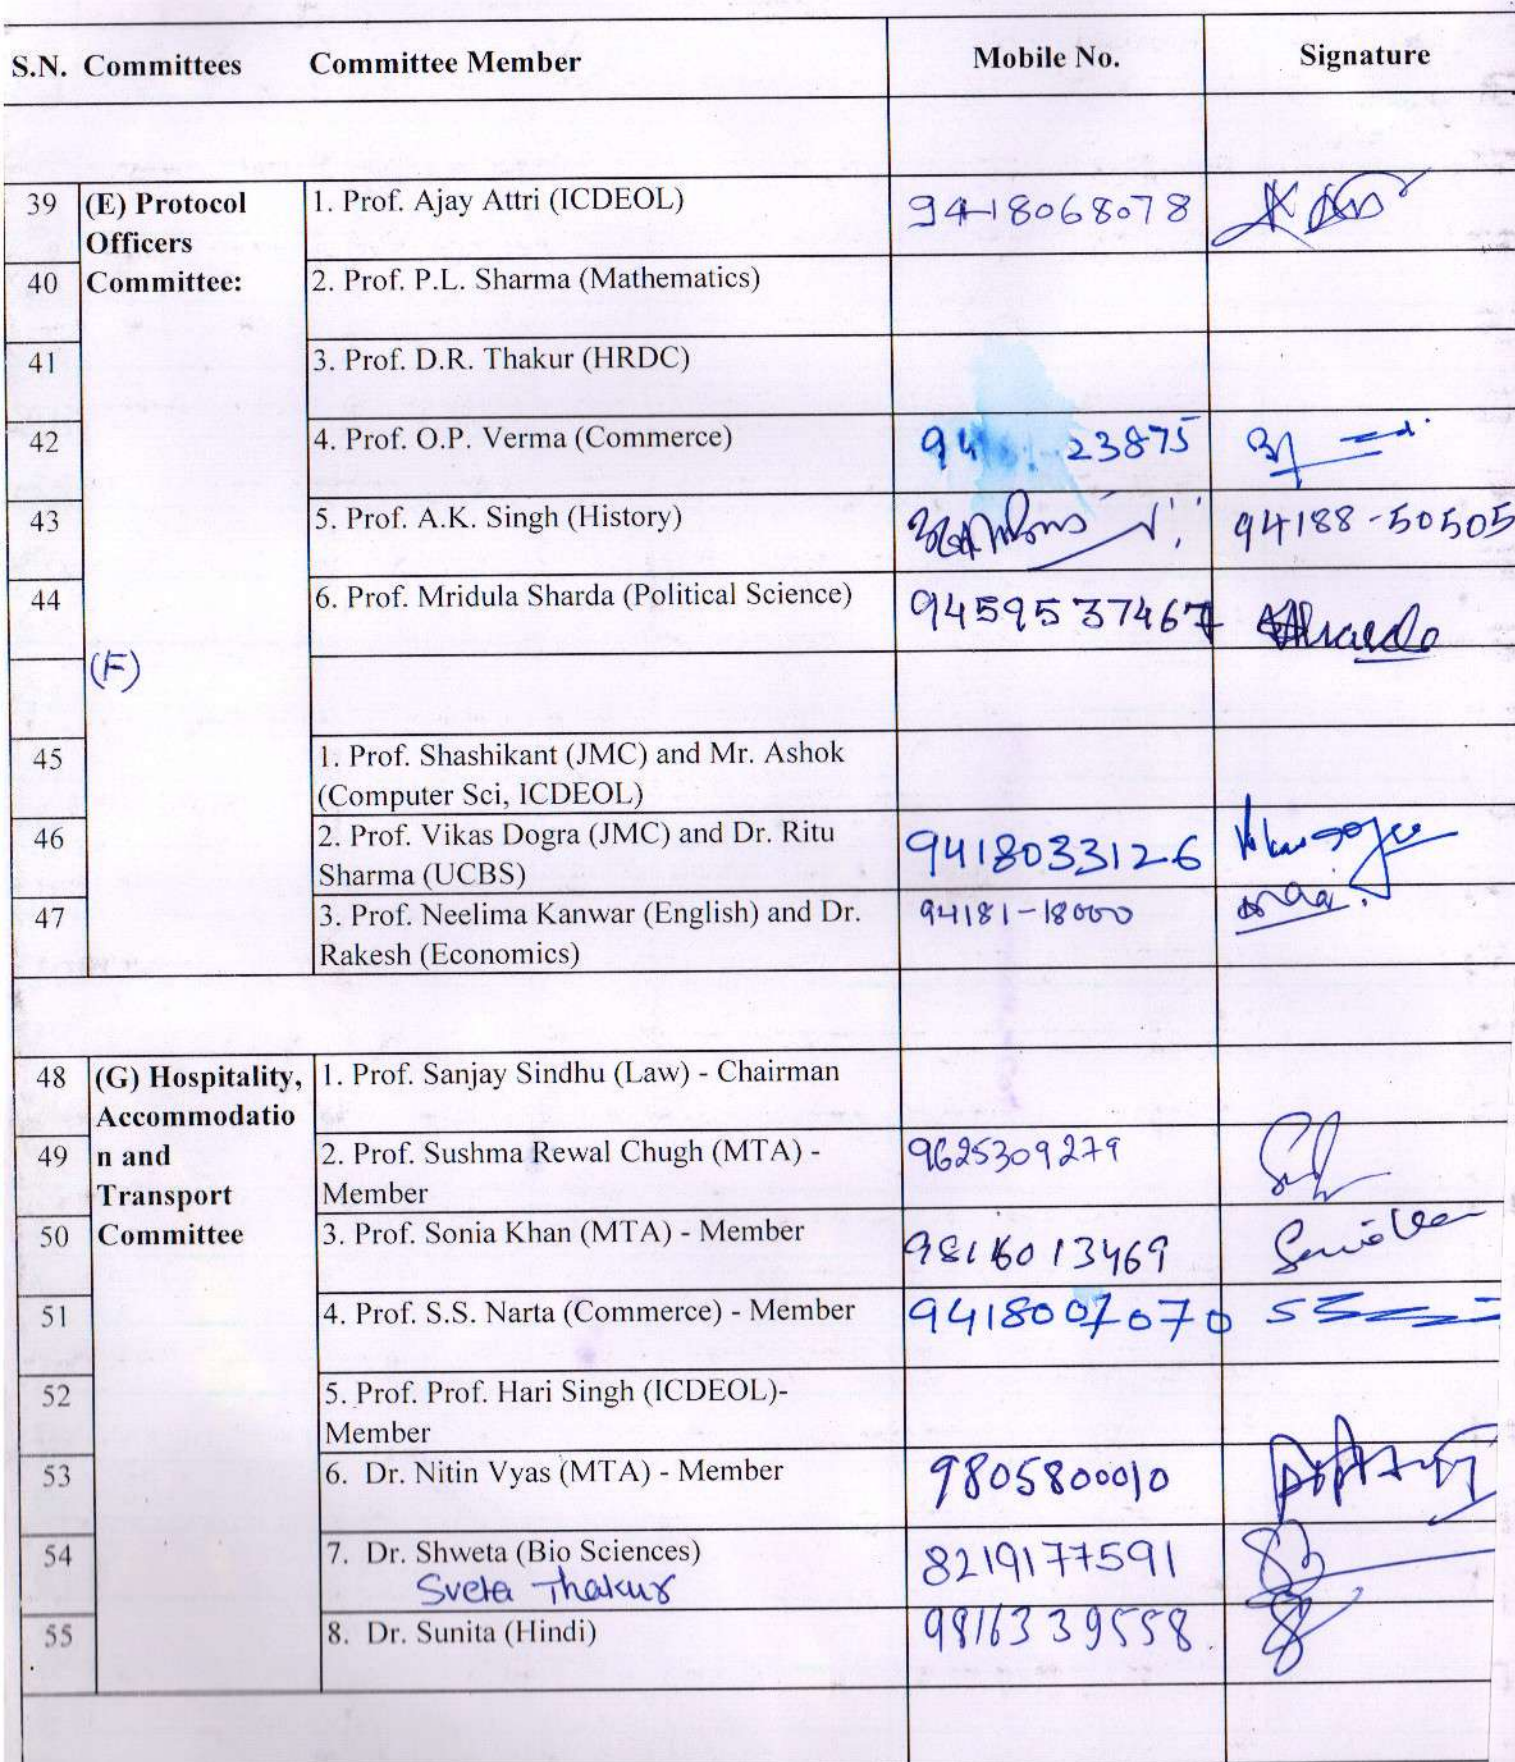 S.N. Committees Committee Member Mobile No. Signature
39 (E) Protocol Officers Committee: 1. Prof. Ajay Attri (ICDEOL) 9418068078
40 2. Prof. P.L. Sharma (Mathematics)
41 3. Prof. D.R. Thakur (HRDC)
42 4. Prof. O.P. Verma (Commerce) 94 23875
43 5. Prof. A.K. Singh (History) 94188-50505
44 6. Prof. Mridula Sharda (Political Science) 9459537467
(F)
45 1. Prof. Shashikant (JMC) and Mr. Ashok
(Computer Sci, ICDEOL)
46 2. Prof. Vikas Dogra (JMC) and Dr. Ritu 9418033126
Sharma (UCBS)
47 3. Prof. Neelima Kanwar (English) and Dr. 94181-18000
Rakesh (Economics)
48 (G) Hospitality, Accommodatio n and Transport Committee 1. Prof. Sanjay Sindhu (Law) - Chairman
49 2. Prof. Sushma Rewal Chugh (MTA) - 9625309279
Member
50 3. Prof. Sonia Khan (MTA) - Member 9816013469
51 4. Prof. S.S. Narta (Commerce) - Member 9418007070
52 5. Prof. Prof. Hari Singh (ICDEOL)-
Member
53 6. Dr. Nitin Vyas (MTA) - Member 9805800010
54 7. Dr. Shweta (Bio Sciences) 8219177591
Sveta Thakur
55 8. Dr. Sunita (Hindi) 9816339558